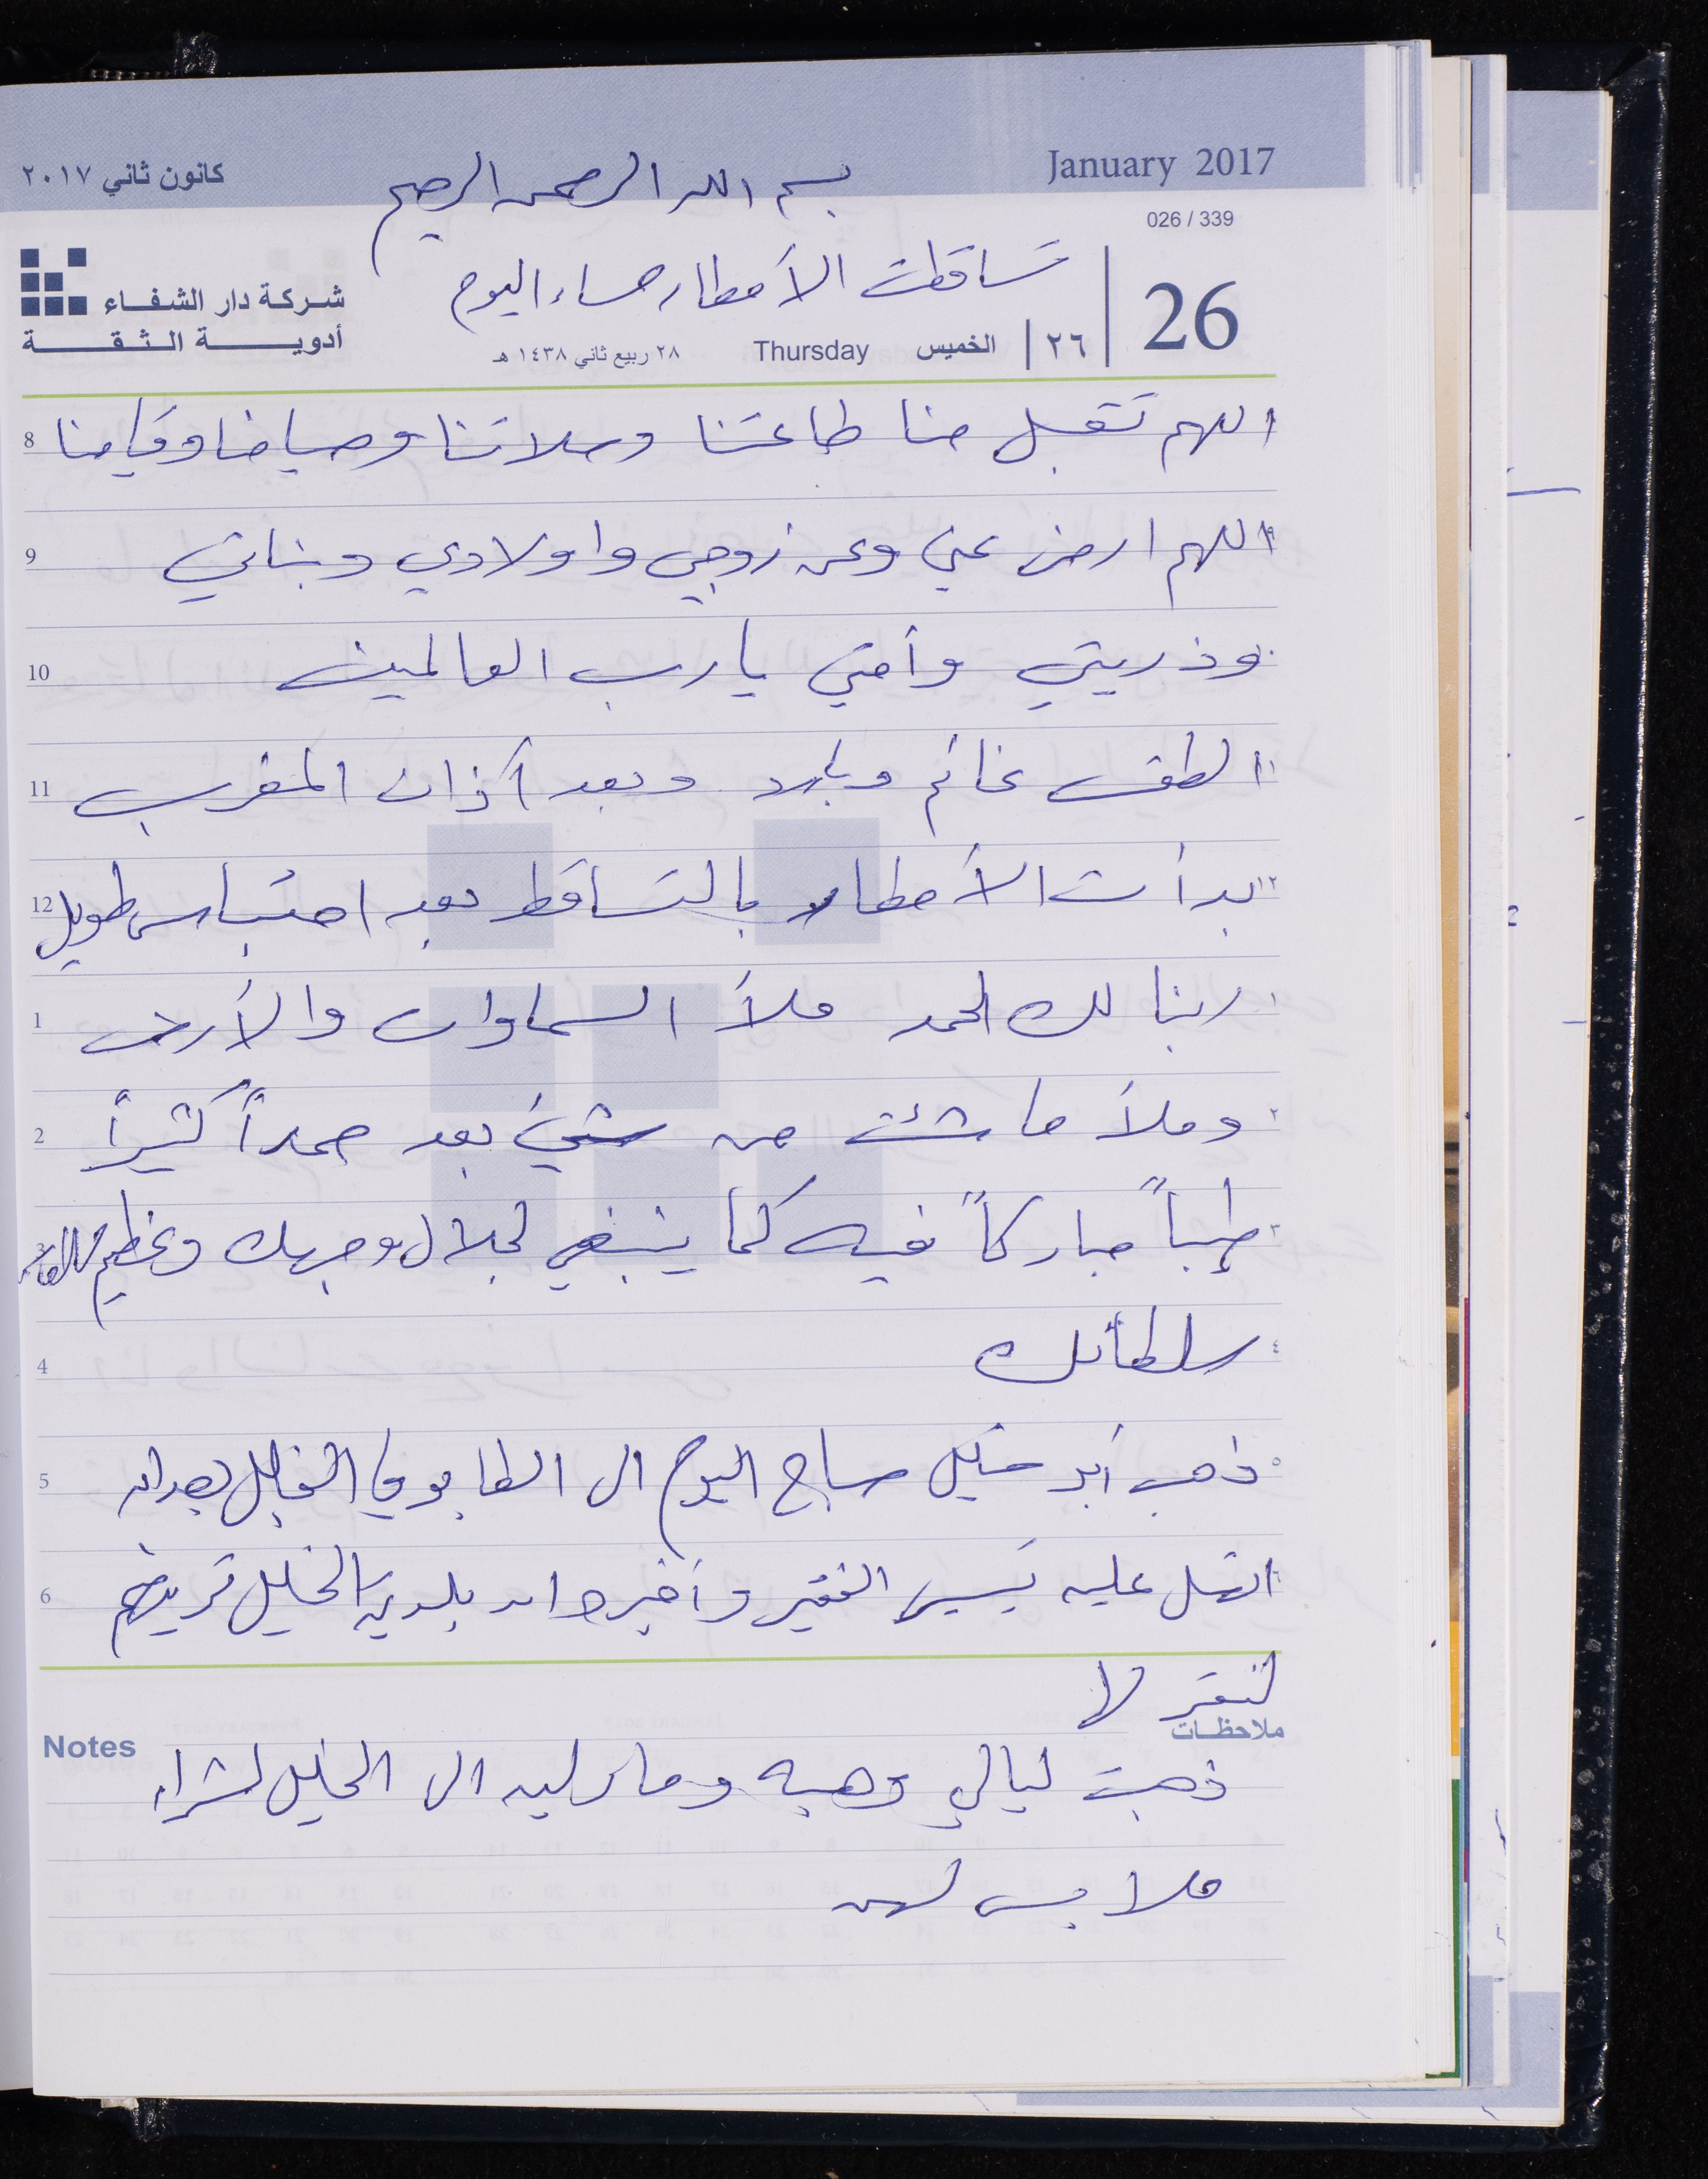 January 2017
كانون ثاني ٢٠١٧
بسم الله الرحمن الرحيم
026 / 339
تساقطت الأمطار مساء اليوم
26
شركة دار الشفاء
أدوية الثقة
٢٦ الخميس Thursday ٢٨ ربيع ثاني ١٤٣٨ هـ
8 اللهم تقبل منا طاعتنا وصلاتنا وصيامنا وقيامنا
9 اللهم ارض عني وعن زوجي واولادي وبناتي
10 وذريتي وأمتي يا رب العالمين
11 الطقس غائم وبارد وبعد آذان المغرب
12 بدأت الأمطار بالتساقط بعد احتباس طويل
1 ربنا لك الحمد ملأ السماوات والأرض
2 وملأ ما شئت من شيء بعد حمداً كثيراً
3 طيباً مباركاً فيه كما ينبغي لجلال وجهك وعظيم
4 سلطانك
5 ذهب أبو صباح اليوم الى في الخليل بعد ان
6 اتصل عليه تيسير الفقير وأخبره ان بلدية الخليل
لا
ملاحظات
Notes
ذهبت ليالي وهبه الى الخليل لشراء
ملابس لهن